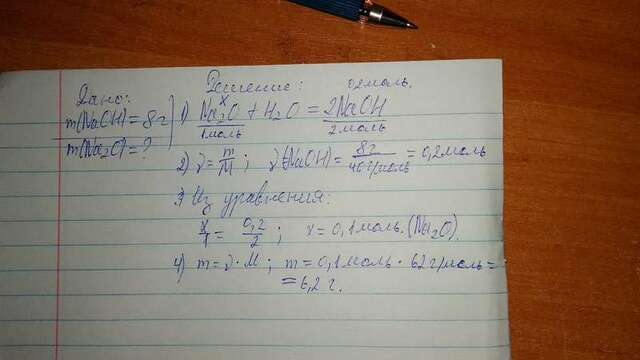 Дано:
m(NaOH) = 8г
m(Na₂O) = ?
Решение:
0,2 моль.
x
1) Na₂O + H₂O = 2NaOH
1 моль 2 моль
2) ν = m/M ; ν(NaOH) = 8г/40 г/моль = 0,2 моль
3) Из уравнения:
x/1 = 0,2/2 ; x = 0,1 моль. (Na₂O).
4) m = ν · M ; m = 0,1 моль · 62 г/моль =
= 6,2 г.